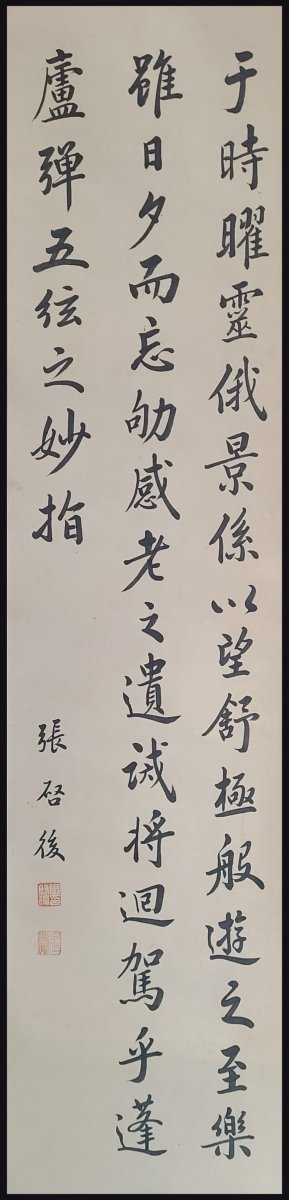 于時曜靈俄景係以望舒極般遊之至樂
雖日夕而忘劬感老之遺誡將迴駕乎蓬
廬彈五弦之妙指
張啓後